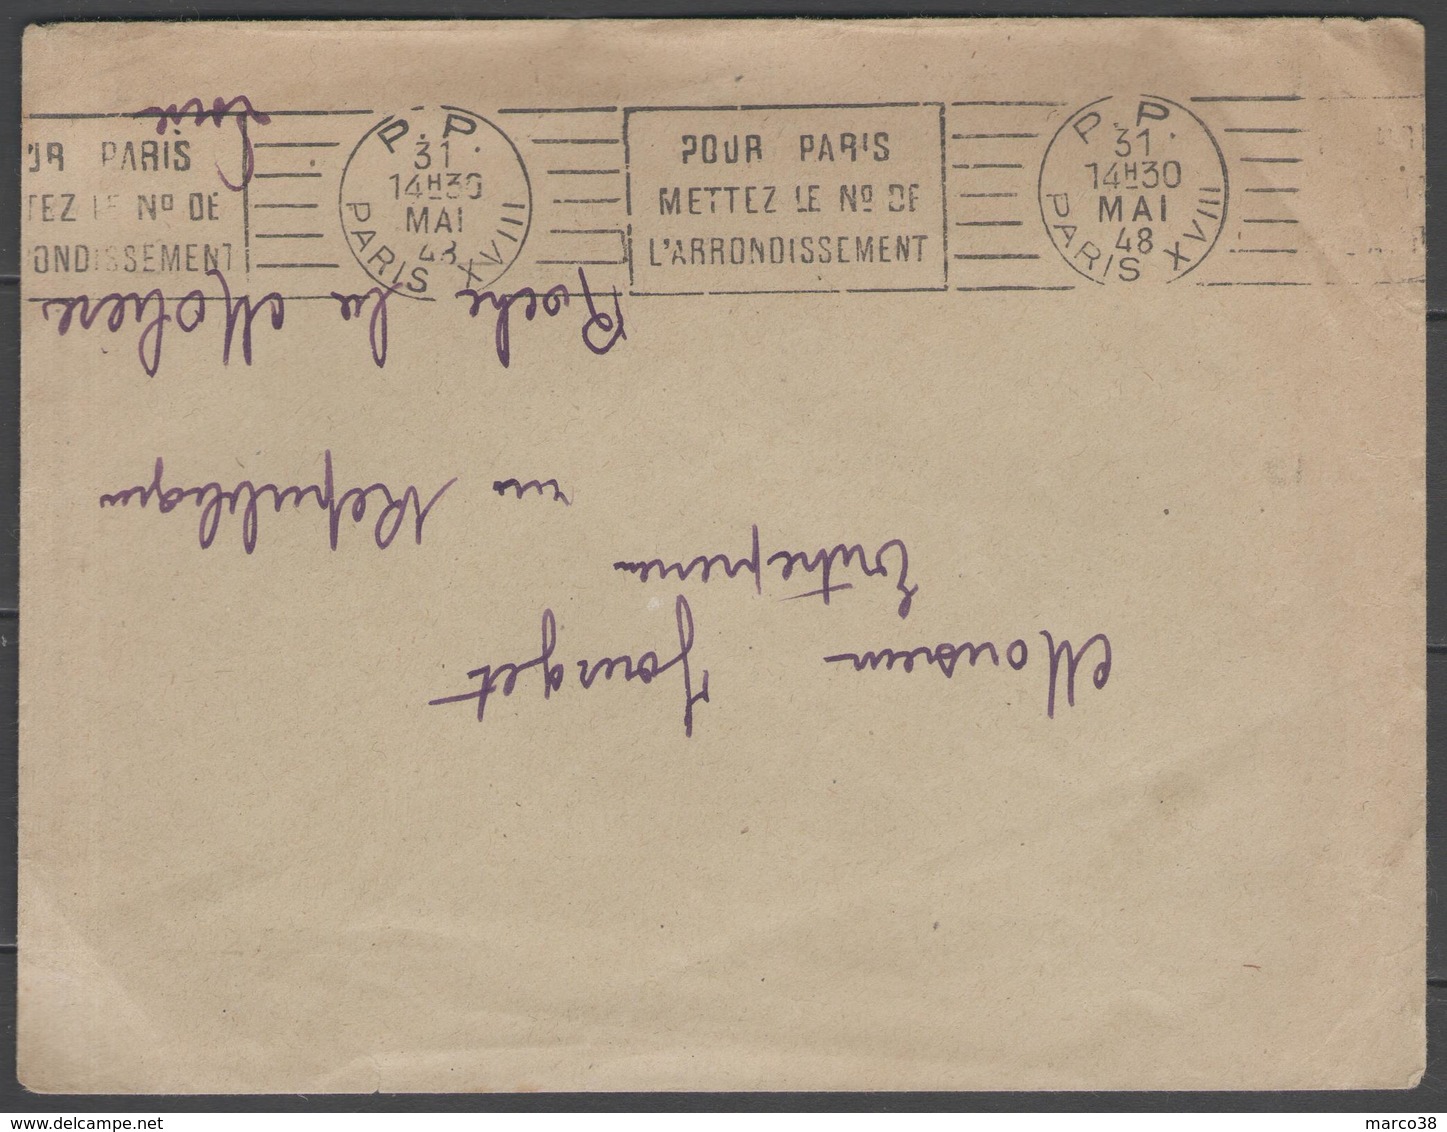 UR PARIS
TEZ LE Nº DE
ONDISSEMENT
P.P.
31
14H30
MAI
48
PARIS XVIII
POUR PARIS
METTEZ LE Nº DE
L'ARRONDISSEMENT
P.P.
31
14H30
MAI
48
PARIS XVIII
Monsieur
Entrepreneur
République
Roche la Molière
Loire
marco38